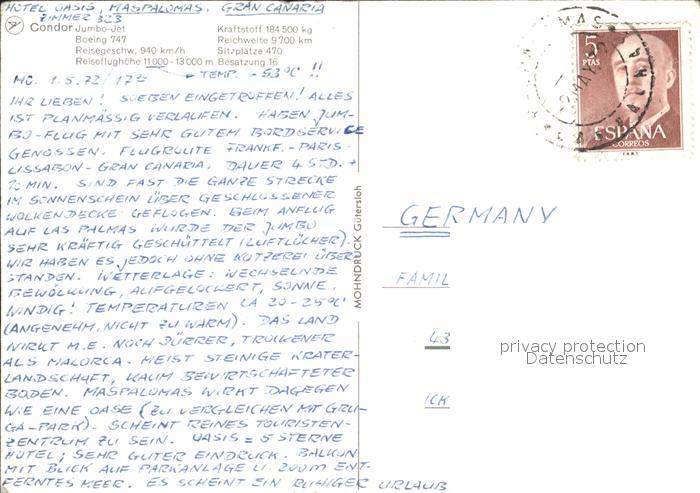 HOTEL OASIS, MASPALOMAS, GRAN CANARIA
ZIMMER 323
Condor Jumbo-Jet
Boeing 747
Reisegeschw. 940 km/h
Reiseflughöhe 11 000 - 13 000 m
Kraftstoff 184 500 kg
Reichweite 9 700 km
Sitzplätze 470
Besatzung 16
TEMP. -53°C !!
MO. 1.5.72/17
IHR LIEBEN! SOEBEN EINGETROFFEN! ALLES
IST PLANMÄSSIG VERLAUFEN. HABEN JUM-
BO-FLUG MIT SEHR GUTEM BORDSERVICE
GENOSSEN. FLUGROUTE FRANKF.-PARIS-
LISSABON-GRAN CANARIA. DAUER 4 STD. +
MIN. SIND FAST DIE GANZE STRECKE
IM SONNENSCHEIN ÜBER GESCHLOSSENER
WOLKENDECKE GEFLOGEN. BEIM ANFLUG
AUF LAS PALMAS WURDE DER JUMBO
SEHR KRÄFTIG GESCHÜTTELT (LUFTLÖCHER).
WIR HABEN ES JEDOCH OHNE KOTZEREI ÜBER
STANDEN. WETTERLAGE: WECHSELNDE
BEWÖLKUNG, AUFGELOCKERT, SONNE,
WINDIG! TEMPERATUREN CA 20-25°C
(ANGENEHM, NICHT ZU WARM). DAS LAND
WIRKT M.E. NOCH DÜRRER, TROCKENER
ALS MALORCA. MEIST STEINIGE KRATER-
LANDSCHAFT, KAUM BEWIRTSCHAFTETER
BODEN. MASPALOMAS WIRKT DAGEGEN
WIE EINE OASE (ZU VERGLEICHEN MIT GRU-
GA-PARK). SCHEINT REINES TOURISTEN-
ZENTRUM ZU SEIN. OASIS = 5 STERNE
HOTEL; SEHR GUTER EINDRUCK. BALKON
MIT BLICK AUF PARKANLAGE U. 200M ENT-
FERNTES MEER. ES SCHEINT EIN RUHIGER URLAUB
MOHNDRUCK Gütersloh
5
PTAS
ESPAÑA
CORREOS
GERMANY
FAMIL
43
ICK
privacy protection
Datenschutz